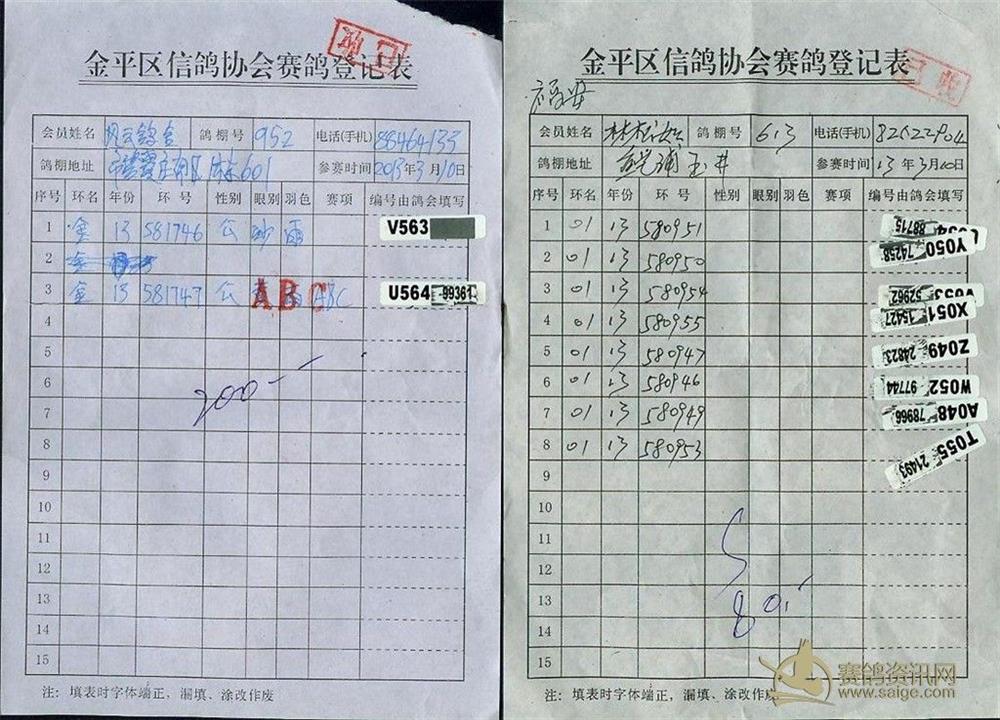 金平区信鸽协会赛鸽登记表
会员姓名 鸽棚号 952 电话(手机) 88464133
鸽棚地址 601 参赛时间 2013年3月10日
序号 环名 年份 环号 性别 眼别 羽色 赛项 编号由鸽会填写
1 金 13 581746 公 砂 雨 V563
2
3 金 13 581747 公 ABC ABC U564 -99361
4
5
6
7
8
9
10
11
12
13
14
15
200—
注：填表时字体端正，漏填、涂改作废
金平区信鸽协会赛鸽登记表
福安
会员姓名 鸽棚号 613 电话(手机) 82522904
鸽棚地址 玉井 参赛时间 13年3月10日
序号 环名 年份 环号 性别 眼别 羽色 赛项 编号由鸽会填写
1 01 13 580951 88715
2 01 13 580950 Y050 74258
3 01 13 580954 52962
4 01 13 580955 X051 15427
5 01 13 580947 Z049 24823
6 01 13 580946 W052 97744
7 01 13 580949 A048 78966
8 01 13 580953 T055 21493
9
10
11
12
13
14
15
80
注：填表时字体端正，漏填、涂改作废
赛鸽资讯网
www.saige.com